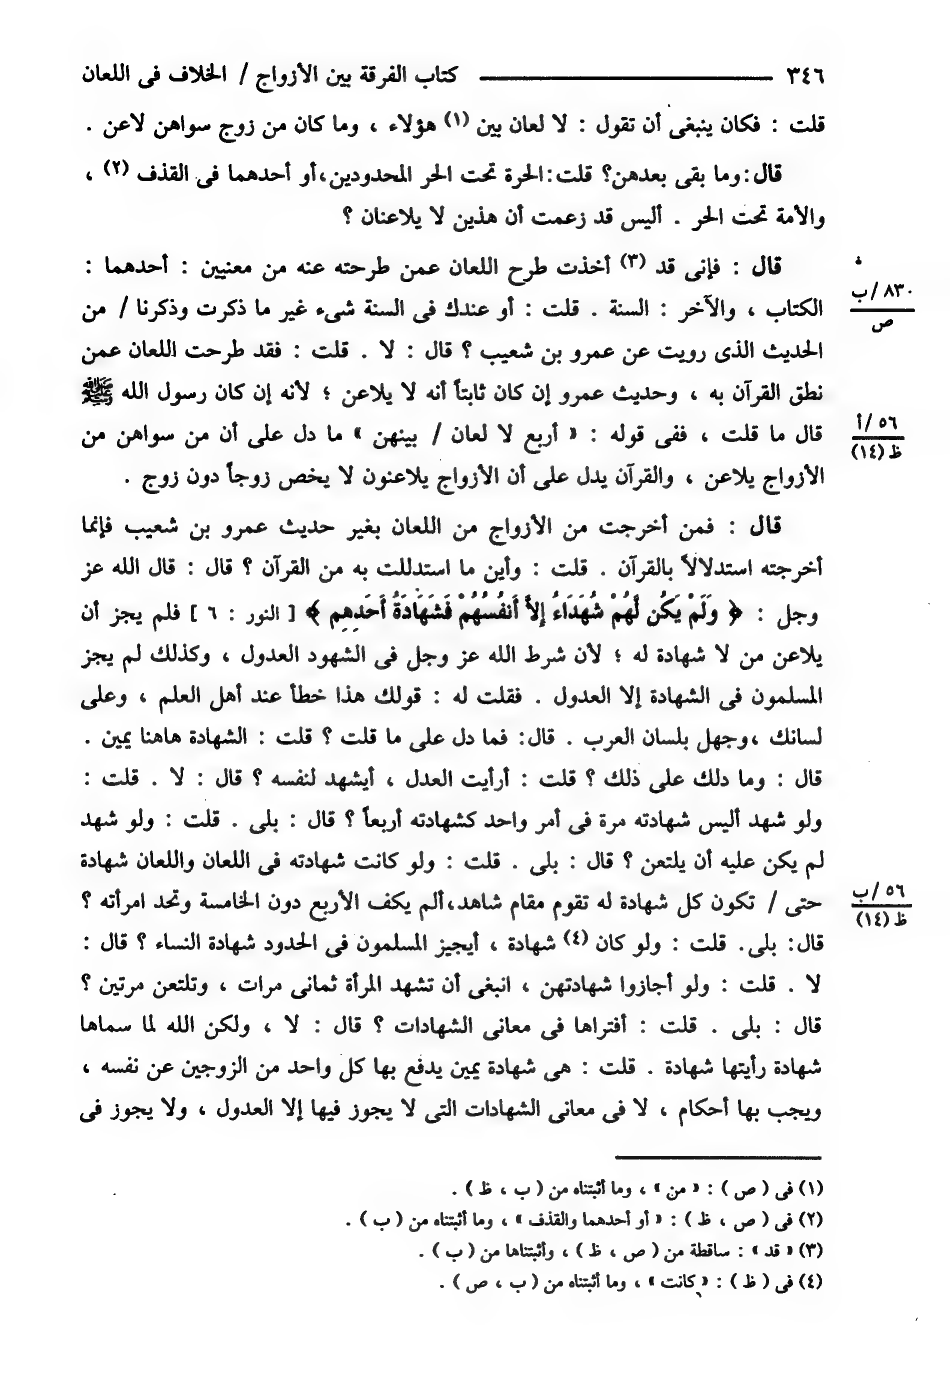 ٣٤٦ ــــــــــــــــــــ كتاب الفرقة بين الأزواج / الخلاف فى اللعان
قلت : فكان ينبغى أن تقول : لا لعان بين (١) هؤلاء ، وما كان من زوج سواهن لاعن .
قال : وما بقى بعدهن؟ قلت : الحرة تحت الحر المحدودين ، أو أحدهما فى القذف (٢) ،
والأمة تحت الحر . أليس قد زعمت أن هذين لا يلاعنان ؟
قال : فإنى قد (٣) أخذت طرح اللعان عمن طرحته عنه من معنيين : أحدهما :
٨٣٠ /ب
ص
الكتاب ، والآخر : السنة . قلت : أو عندك فى السنة شىء غير ما ذكرت وذكرنا / من
الحديث الذى رويت عن عمرو بن شعيب ؟ قال : لا . قلت : فقد طرحت اللعان عمن
نطق القرآن به ، وحديث عمرو إن كان ثابتاً أنه لا يلاعن ؛ لأنه إن كان رسول الله ﷺ
٥٦ /أ
ظ (١٤)
قال ما قلت ، ففى قوله : « أربع لا لعان / بينهن » ما دل على أن من سواهن من
الأزواج يلاعن ، والقرآن يدل على أن الأزواج يلاعنون لا يخص زوجاً دون زوج .
قال : فمن أخرجت من الأزواج من اللعان بغير حديث عمرو بن شعيب فإنما
أخرجته استدلالاً بالقرآن . قلت : وأين ما استدللت به من القرآن ؟ قال : قال الله عز
وجل : ﴿ وَلَمْ يَكُن لَّهُمْ شُهَدَاءُ إِلاَّ أَنفُسُهُمْ فَشَهَادَةُ أَحَدِهِم ﴾ [ النور : ٦ ] فلم يجز أن
يلاعن من لا شهادة له ؛ لأن شرط الله عز وجل فى الشهود العدول ، وكذلك لم يجز
المسلمون فى الشهادة إلا العدول . فقلت له : قولك هذا خطأ عند أهل العلم ، وعلى
لسانك ، وجهل بلسان العرب . قال : فما دل على ما قلت ؟ قلت : الشهادة هاهنا يمين .
قال : وما دلك على ذلك ؟ قلت : أرأيت العدل ، أيشهد لنفسه ؟ قال : لا . قلت :
ولو شهد أليس شهادته مرة فى أمر واحد كشهادته أربعاً ؟ قال : بلى . قلت : ولو شهد
لم يكن عليه أن يلتعن ؟ قال : بلى . قلت : ولو كانت شهادته فى اللعان واللعان شهادة
٥٦ /ب
ظ (١٤)
حتى / تكون كل شهادة له تقوم مقام شاهد ، ألم يكف الأربع دون الخامسة وتحد امرأته ؟
قال : بلى . قلت : ولو كان (٤) شهادة ، أيجيز المسلمون فى الحدود شهادة النساء ؟ قال :
لا . قلت : ولو أجازوا شهادتهن ، انبغى أن تشهد المرأة ثمانى مرات ، وتلتعن مرتين ؟
قال : بلى . قلت : أفتراها فى معانى الشهادات ؟ قال : لا ، ولكن الله لما سماها
شهادة رأيتها شهادة . قلت : هى شهادة يمين يدفع بها كل واحد من الزوجين عن نفسه ،
ويجب بها أحكام ، لا فى معانى الشهادات التى لا يجوز فيها إلا العدول ، ولا يجوز فى
(١) فى ( ص ) : « من » ، وما أثبتناه من ( ب ، ظ ) .
(٢) فى ( ص ، ظ ) : « أو أحدهما والقذف » ، وما أثبتناه من ( ب ) .
(٣) « قد » : ساقطة من ( ص ، ظ ) ، وأثبتناها من ( ب ) .
(٤) فى ( ظ ) : « كانت » ، وما أثبتناه من ( ب ، ص ) .